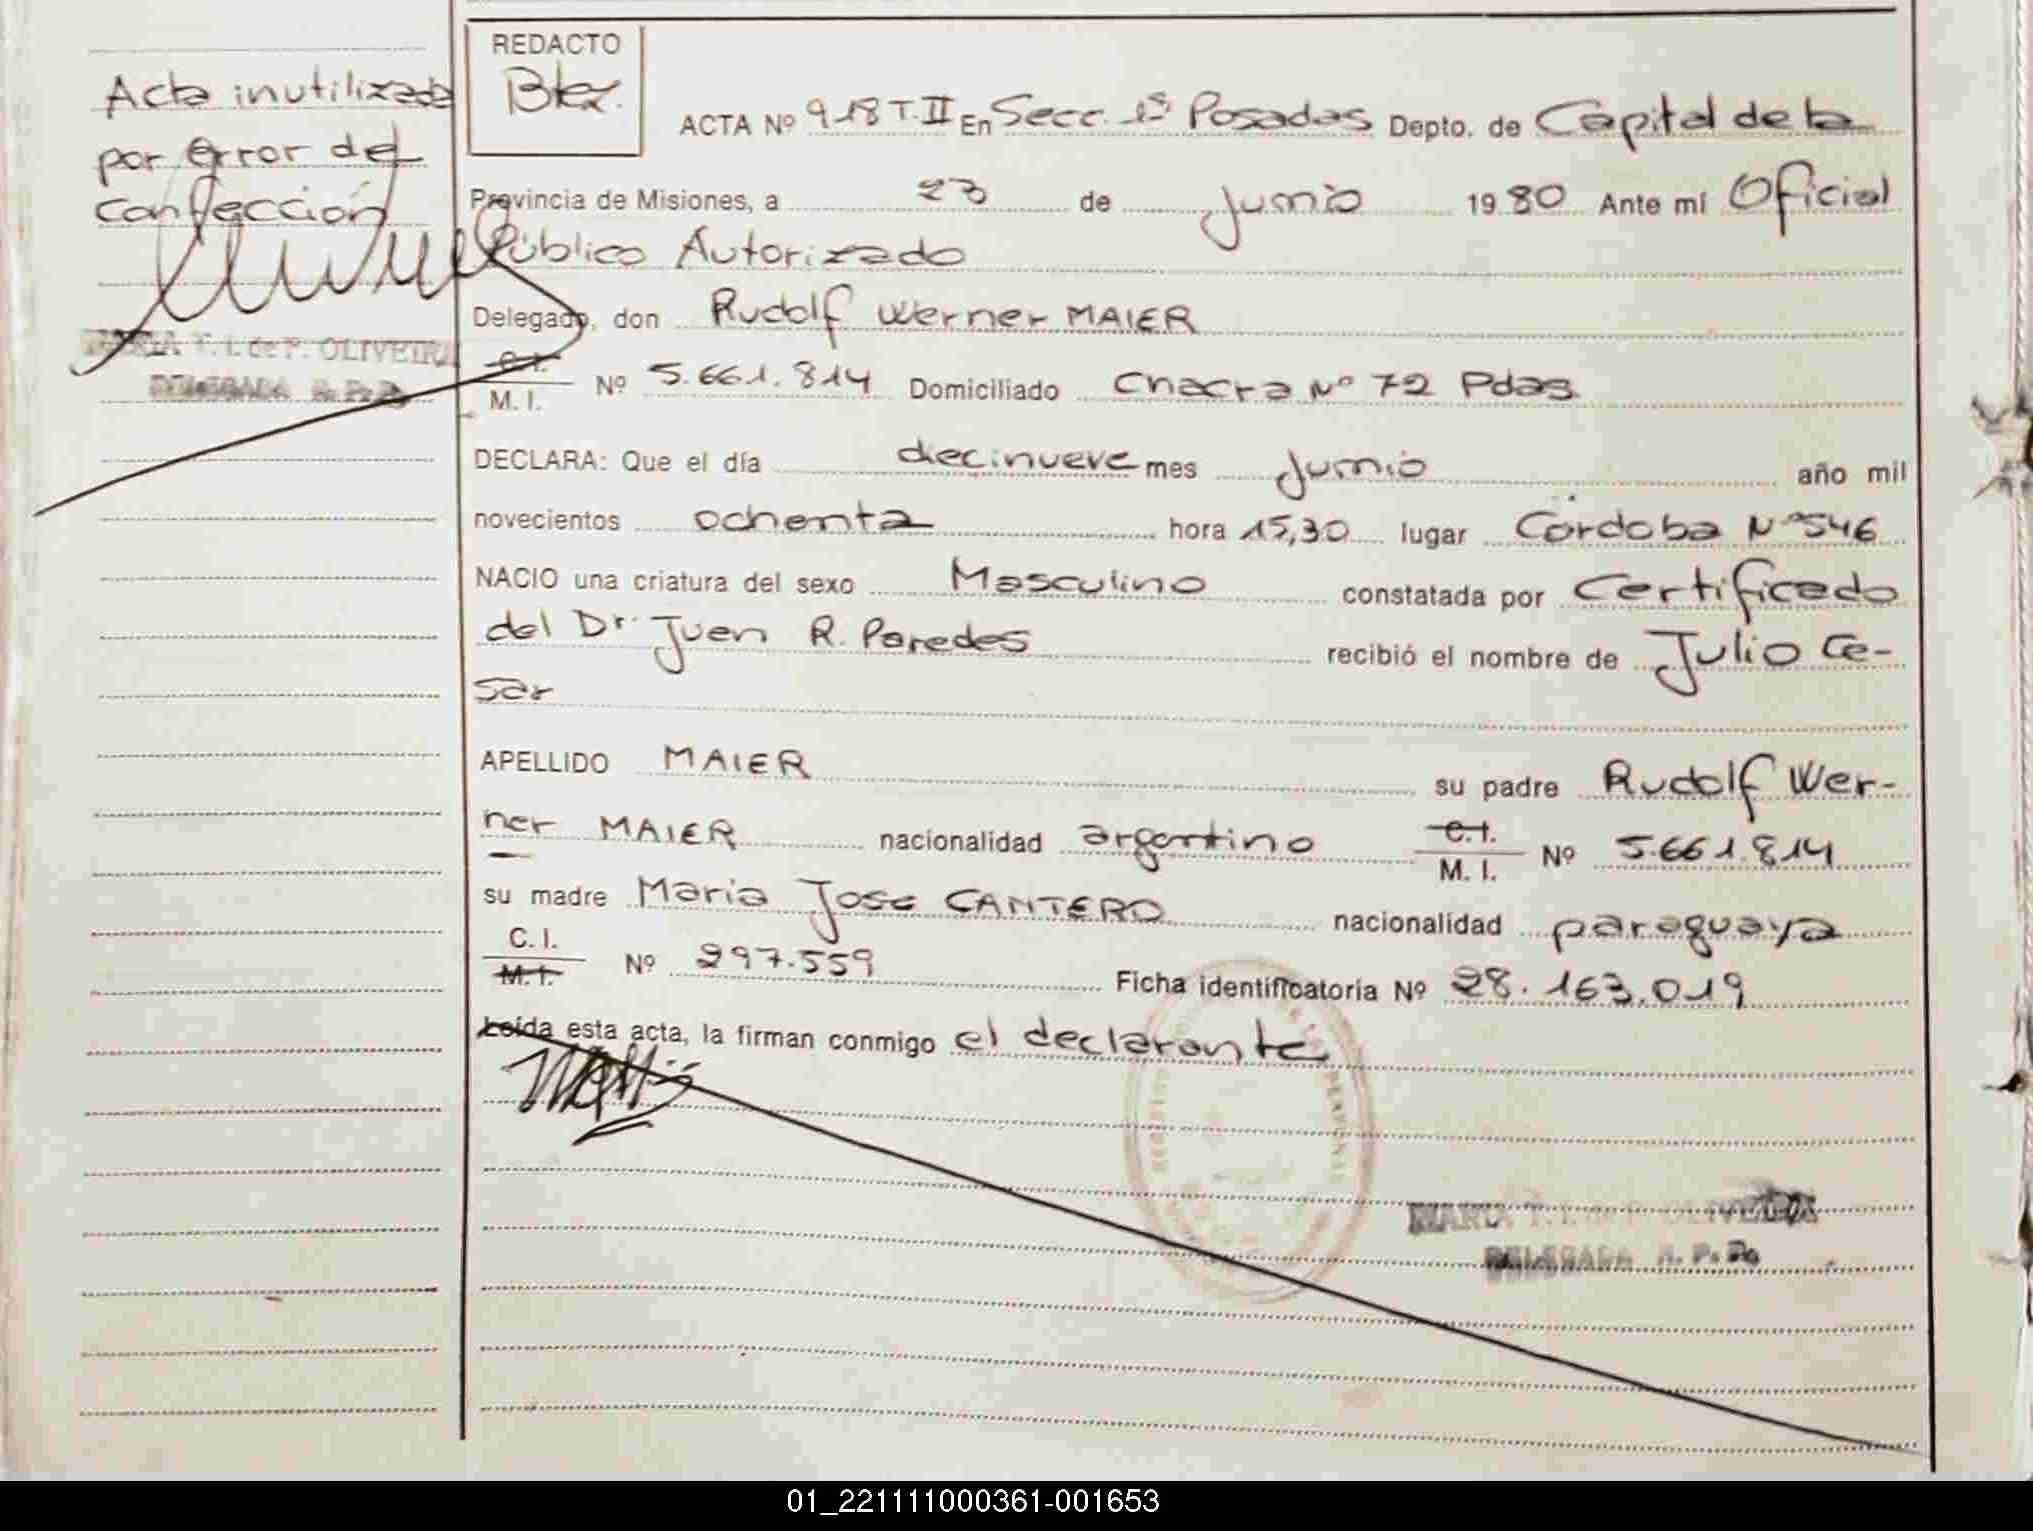 Acta inutilizada
por error del
confección
MARIA T. I. de P. OLIVEIRA
DELEGADA R. P. Ps
REDACTO
Btez.
ACTA Nº 918 T. II En Secc. 1ª Posadas Depto. de Capital de la
Provincia de Misiones, a 23 de Junio 1980 Ante mí Oficial
Público Autorizado
Delegado, don Rudolf Werner MAIER
C.I.
M. I. Nº 5.661.814 Domiciliado Chacra Nº 72 Pdas
DECLARA: Que el día diecinueve mes Junio año mil
novecientos ochenta hora 15,30 lugar Córdoba Nº 546
NACIO una criatura del sexo Masculino constatada por Certificado
del Dr. Juan R. Paredes recibió el nombre de Julio Ce-
sar
APELLIDO MAIER su padre Rudolf Wer-
ner MAIER nacionalidad argentino C.I. M. I. Nº 5.661.814
su madre Maria Jose CANTERO nacionalidad paraguaya
C. I.
M.I. Nº 297.559 Ficha identificatoria Nº 28.163.019
Leída esta acta, la firman conmigo el declarante
MARIA T. I. de P. OLIVEIRA
DELEGADA R. P. Ps
01_221111000361-001653